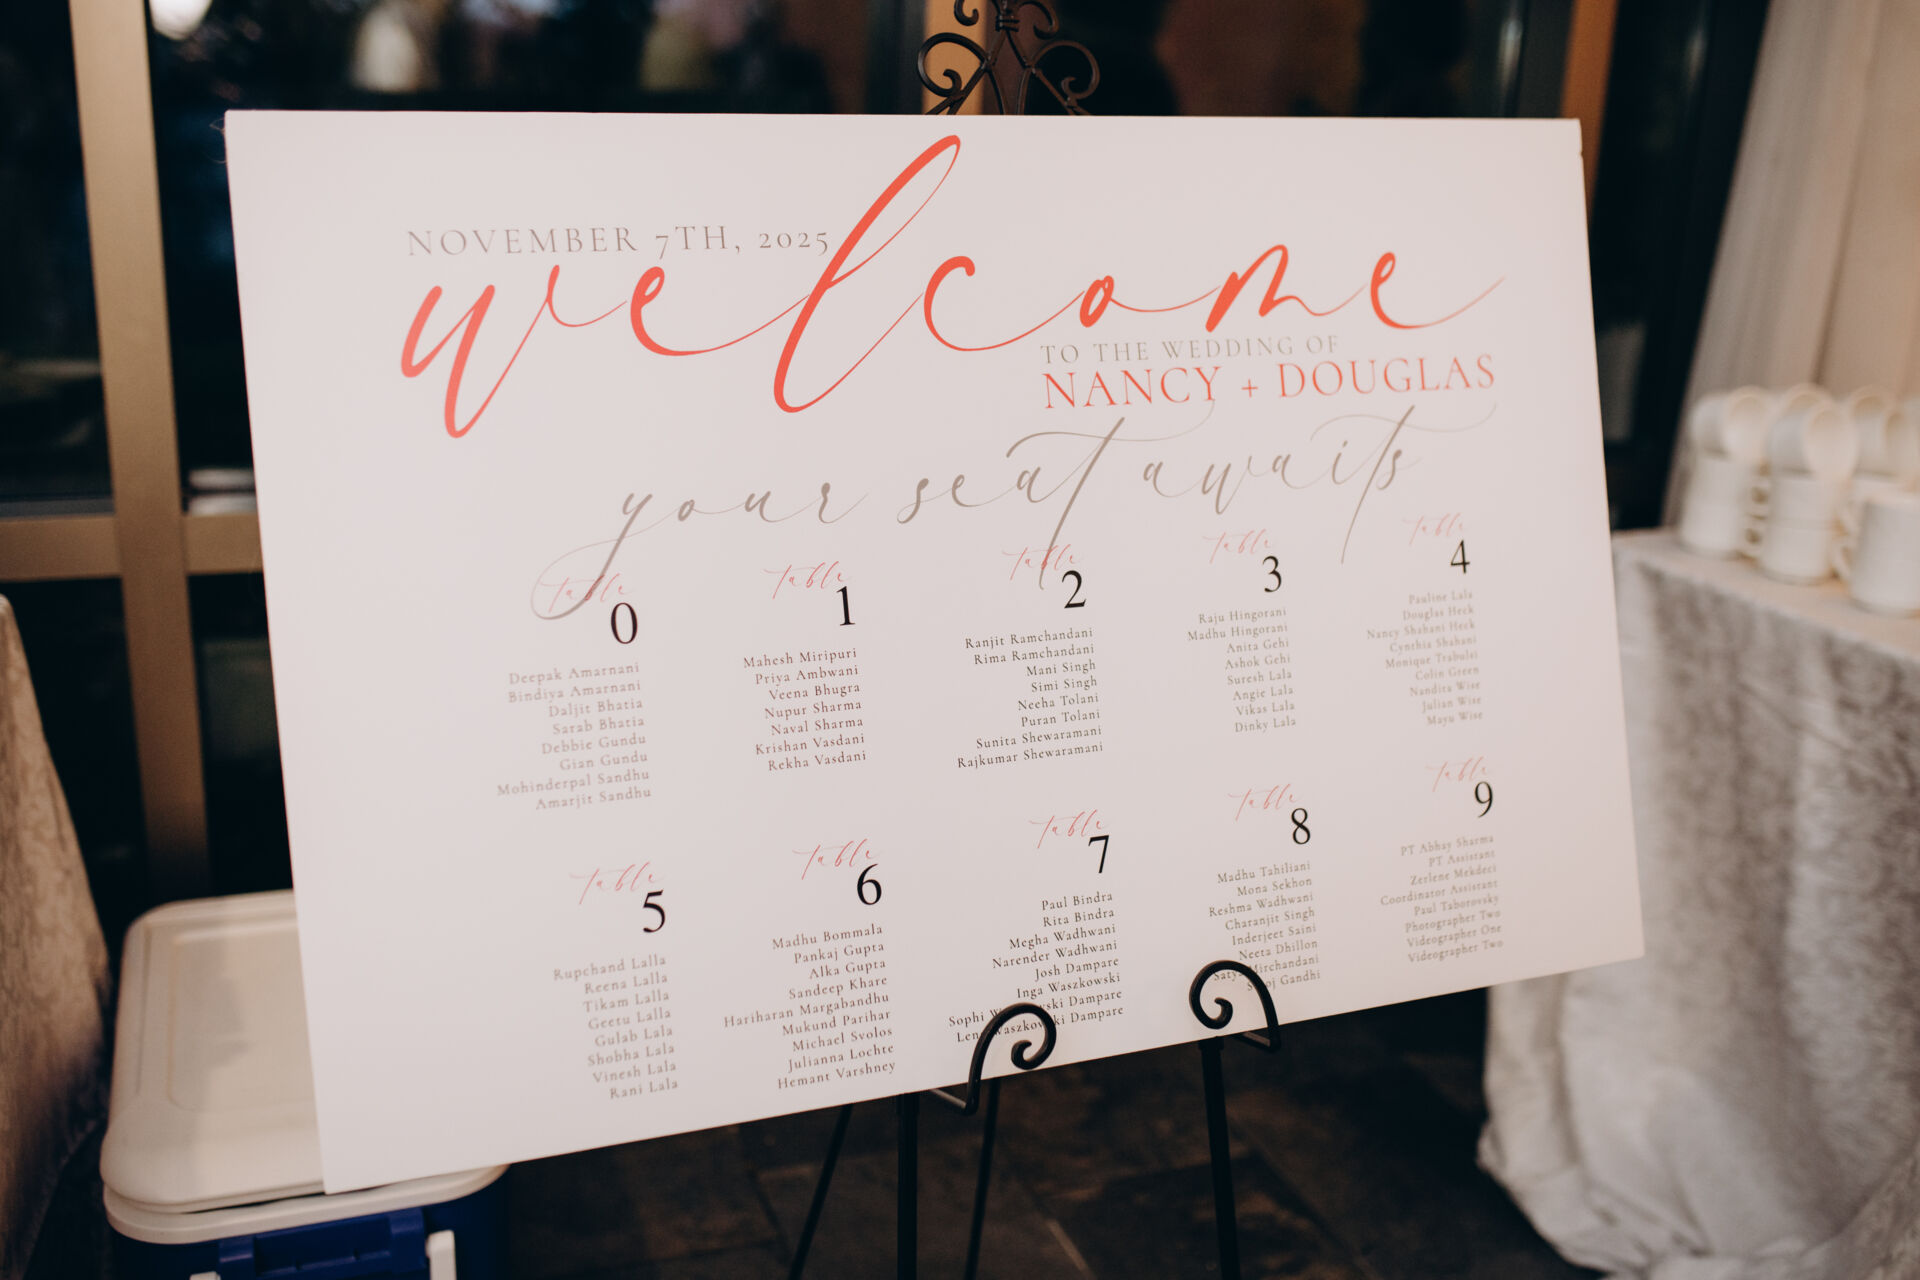 NOVEMBER 7TH, 2025
welcome
TO THE WEDDING OF
NANCY + DOUGLAS
your seat awaits
Table
0
Deepak Amarnani
Bindiya Amarnani
Daljit Bhatia
Sarab Bhatia
Debbie Gundu
Gian Gundu
Mohinderpal Sandhu
Amarjit Sandhu
Table
1
Mahesh Miripuri
Priya Ambwani
Veena Bhugra
Nupur Sharma
Naval Sharma
Krishan Vasdani
Rekha Vasdani
Table
2
Ranjit Ramchandani
Rima Ramchandani
Mani Singh
Simi Singh
Neeha Tolani
Puran Tolani
Sunita Shewaramani
Rajkumar Shewaramani
Table
3
Raju Hingorani
Madhu Hingorani
Anita Gehi
Ashok Gehi
Suresh Lala
Angie Lala
Vikas Lala
Dinky Lala
Table
4
Pauline Lala
Douglas Heck
Nancy Shahani Heck
Cynthia Shahani
Monique Trabulsi
Colin Green
Nandita Wise
Julian Wise
Mayu Wise
Table
5
Rupchand Lalla
Reena Lalla
Tikam Lalla
Geetu Lalla
Gulab Lala
Shobha Lala
Vinesh Lala
Rani Lala
Table
6
Madhu Bommala
Pankaj Gupta
Alka Gupta
Sandeep Khare
Hariharan Margabandhu
Mukund Parihar
Michael Svolos
Julianna Lochte
Hemant Varshney
Table
7
Paul Bindra
Rita Bindra
Megha Wadhwani
Narender Wadhwani
Josh Dampare
Inga Waszkowski
Sophi Dampare
Dampare
Table
8
Madhu Tahiliani
Mona Sekhon
Reshma Wadhwani
Charanjit Singh
Inderjeet Saini
Neeta Dhillon
Mirchandani
Gandhi
Table
9
PT Abhay Sharma
PT Assistant
Zerlene Mekdeci
Coordinator Assistant
Paul Taborovsky
Photographer Two
Videographer One
Videographer Two